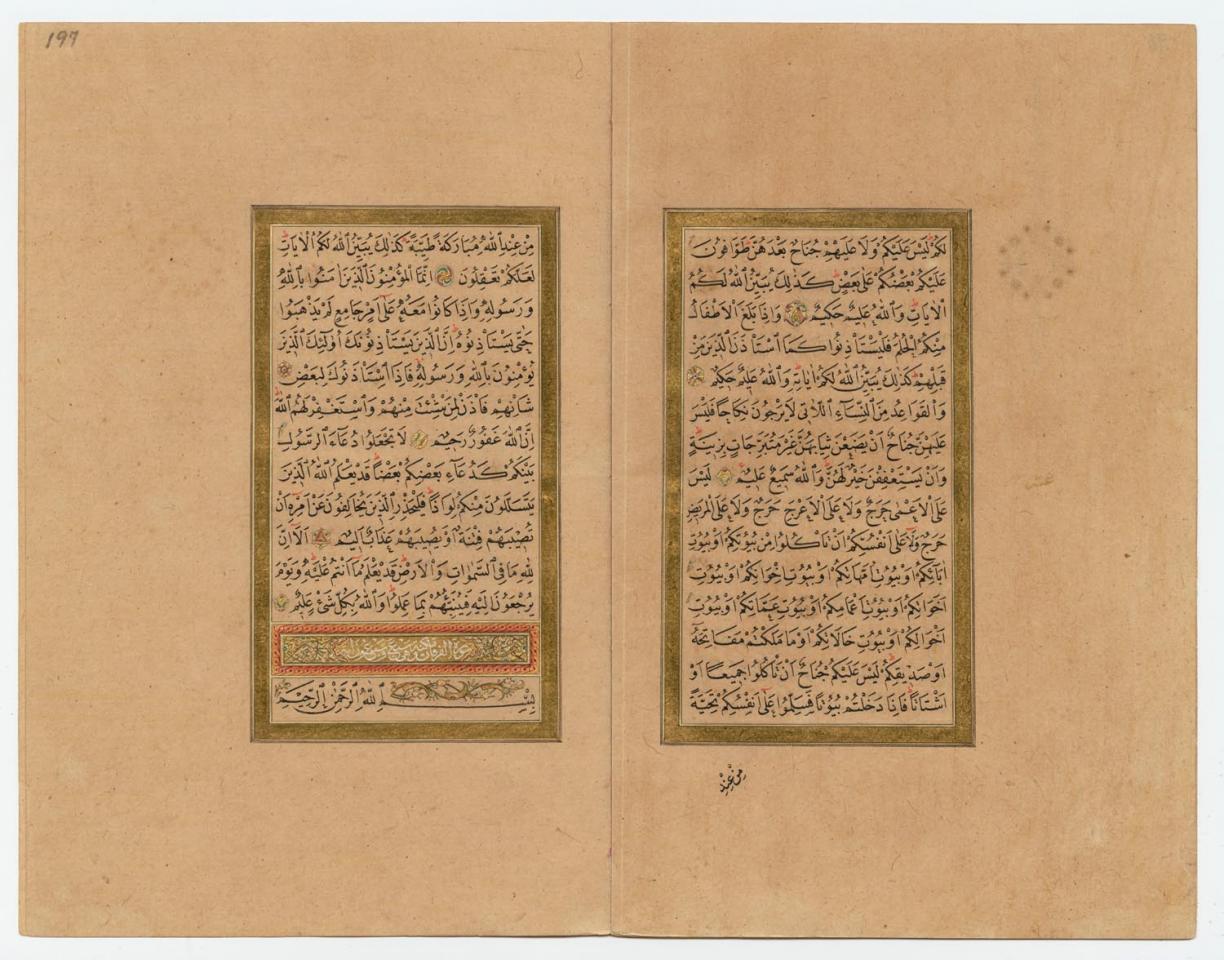 لَكُمْ لَيْسَ عَلَيْكُمْ وَلَا عَلَيْهِمْ جُنَاحٌ بَعْدَهُنَّ طَوَّافُونَ
عَلَيْكُمْ بَعْضُكُمْ عَلَى بَعْضٍ كَذٰلِكَ يُبَيِّنُ اللّٰهُ لَكُمُ
الْاٰيَاتِ وَاللّٰهُ عَلِيمٌ حَكِيمٌ وَاِذَا بَلَغَ الْاَطْفَالُ
مِنْكُمُ الْحُلُمَ فَلْيَسْتَأْذِنُوا كَمَا اسْتَأْذَنَ الَّذِينَ مِنْ
قَبْلِهِمْ كَذٰلِكَ يُبَيِّنُ اللّٰهُ لَكُمْ اٰيَاتِهِ وَاللّٰهُ عَلِيمٌ حَكِيمٌ
وَالْقَوَاعِدُ مِنَ النِّسَاءِ اللَّاتِي لَا يَرْجُونَ نِكَاحًا فَلَيْسَ
عَلَيْهِنَّ جُنَاحٌ اَنْ يَضَعْنَ ثِيَابَهُنَّ غَيْرَ مُتَبَرِّجَاتٍ بِزِينَةٍ
وَاَنْ يَسْتَعْفِفْنَ خَيْرٌ لَهُنَّ وَاللّٰهُ سَمِيعٌ عَلِيمٌ لَيْسَ
عَلَى الْاَعْمٰى حَرَجٌ وَلَا عَلَى الْاَعْرَجِ حَرَجٌ وَلَا عَلَى الْمَرِيضِ
حَرَجٌ وَلَا عَلٰى اَنْفُسِكُمْ اَنْ تَأْكُلُوا مِنْ بُيُوتِكُمْ اَوْ بُيُوتِ
اٰبَائِكُمْ اَوْ بُيُوتِ اُمَّهَاتِكُمْ اَوْ بُيُوتِ اِخْوَانِكُمْ اَوْ بُيُوتِ
اَخَوَاتِكُمْ اَوْ بُيُوتِ اَعْمَامِكُمْ اَوْ بُيُوتِ عَمَّاتِكُمْ اَوْ بُيُوتِ
اَخْوَالِكُمْ اَوْ بُيُوتِ خَالَاتِكُمْ اَوْ مَا مَلَكْتُمْ مَفَاتِحَهُ
اَوْ صَدِيقِكُمْ لَيْسَ عَلَيْكُمْ جُنَاحٌ اَنْ تَأْكُلُوا جَمِيعًا اَوْ
اَشْتَاتًا فَاِذَا دَخَلْتُمْ بُيُوتًا فَسَلِّمُوا عَلٰى اَنْفُسِكُمْ تَحِيَّةً
مِنْ عِنْدِ
197
مِنْ عِنْدِ اللّٰهِ مُبَارَكَةً طَيِّبَةً كَذٰلِكَ يُبَيِّنُ اللّٰهُ لَكُمُ الْاٰيَاتِ
لَعَلَّكُمْ تَعْقِلُونَ اِنَّمَا الْمُؤْمِنُونَ الَّذِينَ اٰمَنُوا بِاللّٰهِ
وَرَسُولِهِ وَاِذَا كَانُوا مَعَهُ عَلٰى اَمْرٍ جَامِعٍ لَمْ يَذْهَبُوا
حَتّٰى يَسْتَأْذِنُوهُ اِنَّ الَّذِينَ يَسْتَأْذِنُونَكَ اُولٰئِكَ الَّذِينَ
يُؤْمِنُونَ بِاللّٰهِ وَرَسُولِهِ فَاِذَا اسْتَأْذَنُوكَ لِبَعْضِ
شَأْنِهِمْ فَأْذَنْ لِمَنْ شِئْتَ مِنْهُمْ وَاسْتَغْفِرْ لَهُمُ اللّٰهَ
اِنَّ اللّٰهَ غَفُورٌ رَحِيمٌ لَا تَجْعَلُوا دُعَاءَ الرَّسُولِ
بَيْنَكُمْ كَدُعَاءِ بَعْضِكُمْ بَعْضًا قَدْ يَعْلَمُ اللّٰهُ الَّذِينَ
يَتَسَلَّلُونَ مِنْكُمْ لِوَاذًا فَلْيَحْذَرِ الَّذِينَ يُخَالِفُونَ عَنْ اَمْرِهِ اَنْ
تُصِيبَهُمْ فِتْنَةٌ اَوْ يُصِيبَهُمْ عَذَابٌ اَلِيمٌ اَلَا اِنَّ
لِلّٰهِ مَا فِي السَّمٰوَاتِ وَالْاَرْضِ قَدْ يَعْلَمُ مَا اَنْتُمْ عَلَيْهِ وَيَوْمَ
يُرْجَعُونَ اِلَيْهِ فَيُنَبِّئُهُمْ بِمَا عَمِلُوا وَاللّٰهُ بِكُلِّ شَيْءٍ عَلِيمٌ
سورة الفرقان مكية وهي سبع وسبعون آية
بِسْمِ اللّٰهِ الرَّحْمٰنِ الرَّحِيمِ